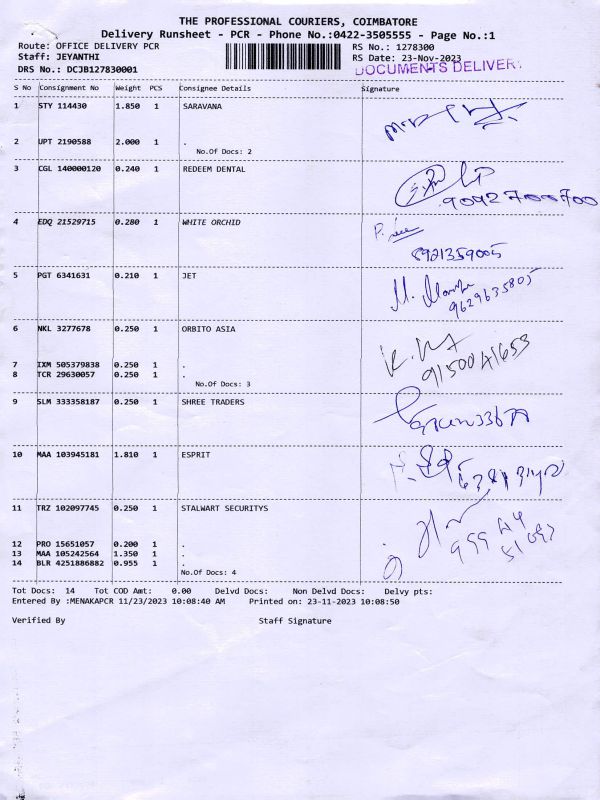 THE PROFESSIONAL COURIERS, COIMBATORE
Delivery Runsheet - PCR - Phone No.:0422-3505555 - Page No.:1
Route: OFFICE DELIVERY PCR RS No.: 1278300
Staff: JEYANTHI RS Date: 23-Nov-2023
DRS No.: DCJB127830001 DOCUMENTS DELIVERY
S No Consignment No Weight PCS Consignee Details Signature
1 STY 114430 1.850 1 SARAVANA
2 UPT 2190588 2.000 1 .
No.Of Docs: 2
3 CGL 140000120 0.240 1 REDEEM DENTAL
9092700700
4 EDQ 21529715 0.280 1 WHITE ORCHID
8921359005
5 PGT 6341631 0.210 1 JET
9629635805
6 NKL 3277678 0.250 1 ORBITO ASIA
7 IXM 505379838 0.250 1 .
8 TCR 29630057 0.250 1 .
No.Of Docs: 3
9 SLM 333358187 0.250 1 SHREE TRADERS
10 MAA 103945181 1.810 1 ESPRIT
11 TRZ 102097745 0.250 1 STALWART SECURITYS
12 PRO 15651057 0.200 1 .
13 MAA 105242564 1.350 1 .
14 BLR 4251886882 0.955 1 .
No.Of Docs: 4
Tot Docs: 14 Tot COD Amt: 0.00 Delvd Docs: Non Delvd Docs: Delvy pts:
Entered By :MENAKAPCR 11/23/2023 10:08:40 AM Printed on: 23-11-2023 10:08:50
Verified By Staff Signature